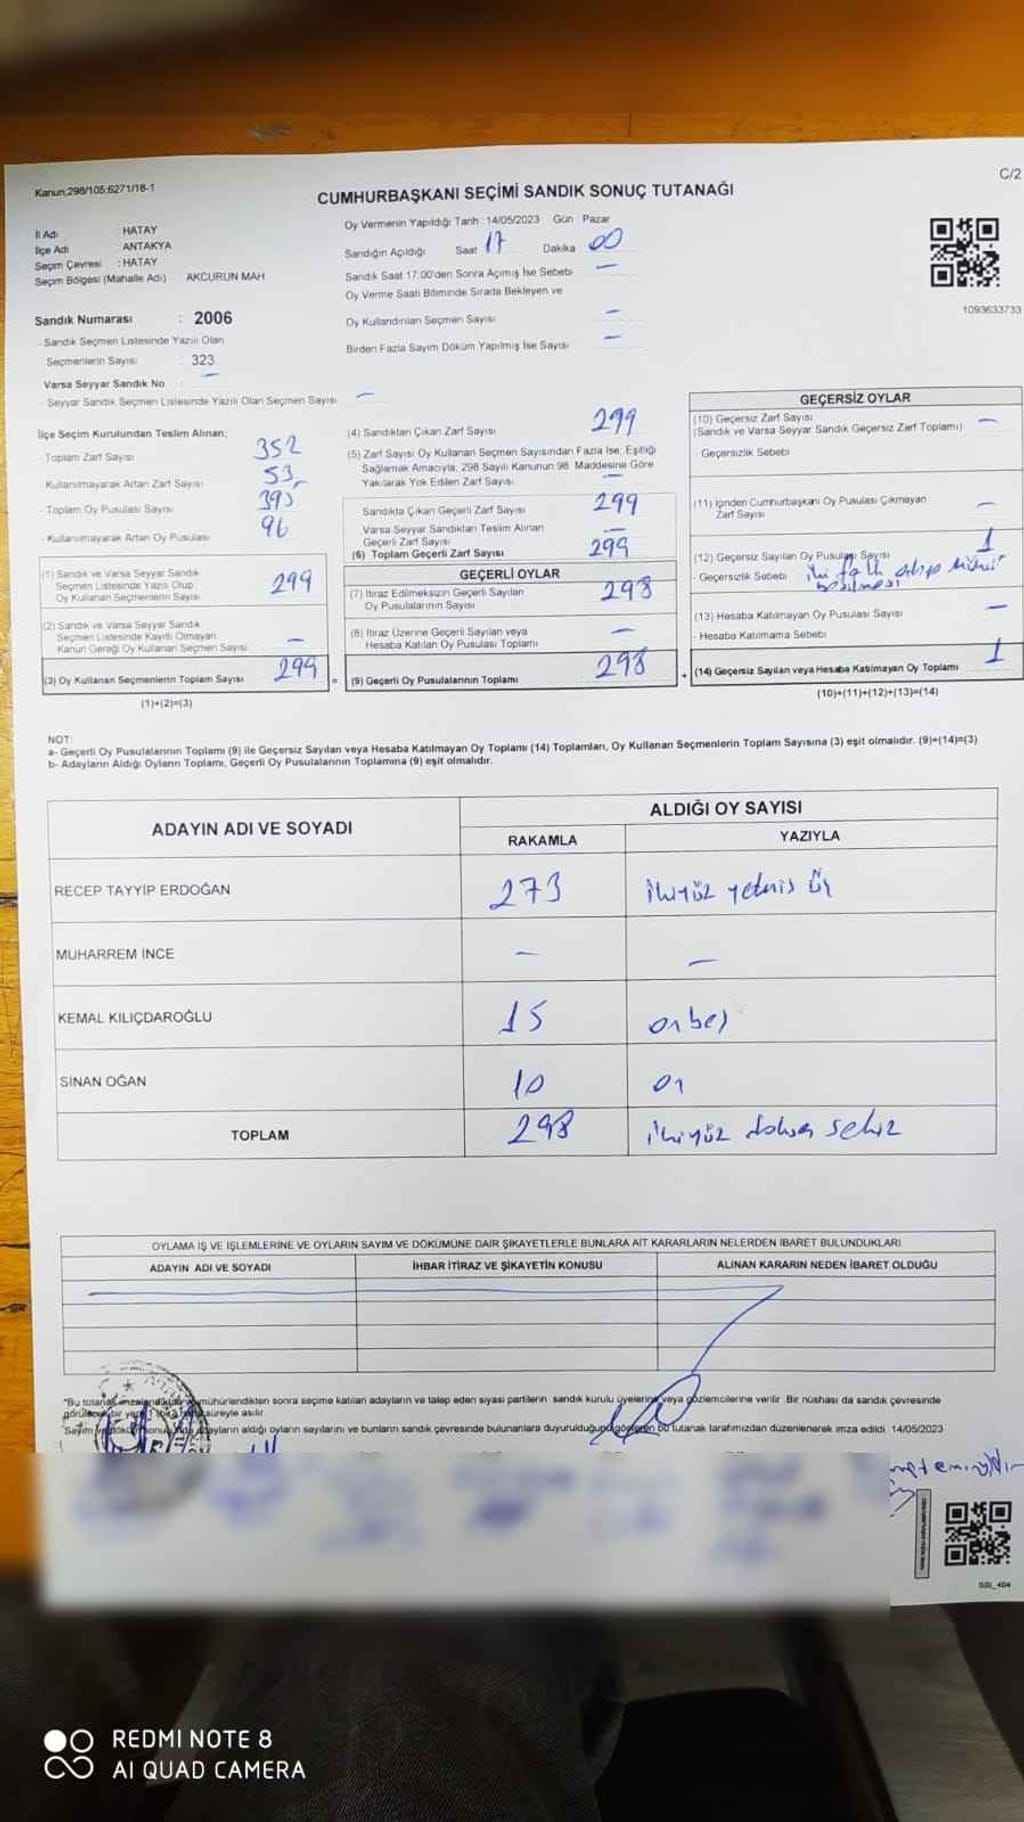 Kanun:298/105;6271/18-1
C/2
CUMHURBAŞKANI SEÇİMİ SANDIK SONUÇ TUTANAĞI
İl Adı HATAY
İlçe Adı ANTAKYA
Seçim Çevresi : HATAY
Seçim Bölgesi (Mahalle Adı) AKCURUN MAH
Oy Vermenin Yapıldığı Tarih : 14/05/2023 Gün Pazar
Sandığın Açıldığı Saat 17 Dakika 00
Sandık Saat 17:00'den Sonra Açımış İse Sebebi —
Oy Verme Saati Bitiminde Sırada Bekleyen ve
Oy Kullandırılan Seçmen Sayısı —
Birden Fazla Sayım Döküm Yapılmış İse Sayısı —
1093633733
Sandık Numarası : 2006
- Sandık Seçmen Listesinde Yazılı Olan
Seçmenlerin Sayısı : 323
Varsa Seyyar Sandık No : —
- Seyyar Sandık Seçmen Listesinde Yazılı Olan Seçmen Sayısı —
İlçe Seçim Kurulundan Teslim Alınan;
Toplam Zarf Sayısı 352
- Kullanılmayarak Artan Zarf Sayısı 53
- Toplam Oy Pusulası Sayısı 395
- Kullanılmayarak Artan Oy Pusulası 96
(1) Sandık ve Varsa Seyyar Sandık
Seçmen Listesinde Yazılı Olup,
Oy Kullanan Seçmenlerin Sayısı 299
(2) Sandık ve Varsa Seyyar Sandık
Seçmen Listesinde Kayıtlı Olmayan
Kanun Gereği Oy Kullanan Seçmen Sayısı —
(3) Oy Kullanan Seçmenlerin Toplam Sayısı 299
(1)+(2)=(3)
(4) Sandıktan Çıkan Zarf Sayısı 299
(5) Zarf Sayısı Oy Kullanan Seçmen Sayısından Fazla İse, Eşitliği
Sağlamak Amacıyla; 298 Sayılı Kanunun 98. Maddesine Göre
Yakılarak Yok Edilen Zarf Sayısı —
Sandıkta Çıkan Geçerli Zarf Sayısı 299
Varsa Seyyar Sandıktan Teslim Alınan
Geçerli Zarf Sayısı —
(6) Toplam Geçerli Zarf Sayısı 299
GEÇERLİ OYLAR
(7) İtiraz Edilmeksizin Geçerli Sayılan
Oy Pusulalarının Sayısı 298
(8) İtiraz Üzerine Geçerli Sayılan veya
Hesaba Katılan Oy Pusulası Toplamı —
= (9) Geçerli Oy Pusulalarının Toplamı 298
GEÇERSİZ OYLAR
(10) Geçersiz Zarf Sayısı —
(Sandık ve Varsa Seyyar Sandık Geçersiz Zarf Toplamı)
- Geçersizlik Sebebi
(11) İçinden Cumhurbaşkanı Oy Pusulası Çıkmayan
Zarf Sayısı —
(12) Geçersiz Sayılan Oy Pusulası Sayısı 1
- Geçersizlik Sebebi iki
(13) Hesaba Katılmayan Oy Pusulası Sayısı —
- Hesaba Katılmama Sebebi
+ (14) Geçersiz Sayılan veya Hesaba Katılmayan Oy Toplamı 1
(10)+(11)+(12)+(13)=(14)
NOT:
a- Geçerli Oy Pusulalarının Toplamı (9) ile Geçersiz Sayılan veya Hesaba Katılmayan Oy Toplamı (14) Toplamları, Oy Kullanan Seçmenlerin Toplam Sayısına (3) eşit olmalıdır. (9)+(14)=(3)
b- Adayların Aldığı Oyların Toplamı, Geçerli Oy Pusulalarının Toplamına (9) eşit olmalıdır.
ADAYIN ADI VE SOYADI ALDIĞI OY SAYISI
RAKAMLA YAZIYLA
RECEP TAYYİP ERDOĞAN 273 ikiyüz yetmis üç
MUHARREM İNCE — —
KEMAL KILIÇDAROĞLU 15 onbeş
SİNAN OĞAN 10 on
TOPLAM 298 ikiyüz doksan sekiz
OYLAMA İŞ VE İŞLEMLERİNE VE OYLARIN SAYIM VE DÖKÜMÜNE DAİR ŞİKAYETLERLE BUNLARA AİT KARARLARIN NELERDEN İBARET BULUNDUKLARI
ADAYIN ADI VE SOYADI İHBAR İTİRAZ VE ŞİKAYETİN KONUSU ALINAN KARARIN NEDEN İBARET OLDUĞU
"Bu tutanak mühürlendikten sonra seçime katılan adayların ve talep eden siyasi partilerin sandık kurulu üyelerine veya gözlemcilerine verilir. Bir nüshası da sandık çevresinde
bir yere süreyle asılır.
adayların aldığı oyların sayılarını ve bunların sandık çevresinde bulunanlara duyurulduğunu gösteren bu tutanak tarafımızdan düzenlenerek imza edildi. 14/05/2023
SSI_404
REDMI NOTE 8
AI QUAD CAMERA